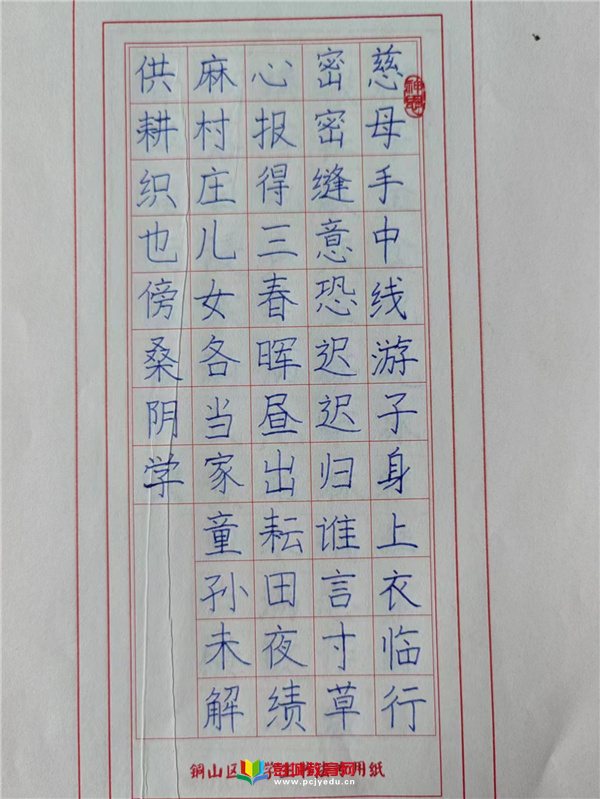 慈母手中线游子身上衣临行
密密缝意恐迟迟归谁言寸草
心报得三春晖昼出耘田夜绩
麻村庄儿女各当家童孙未解
供耕织也傍桑阴学
铜山区
用纸
彭城教育网
www.pcjyedu.cn